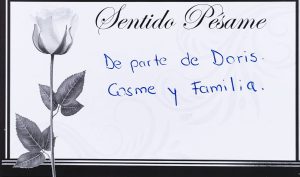 Sentido Pésame
De parte de Doris.
Cosme y Familia.